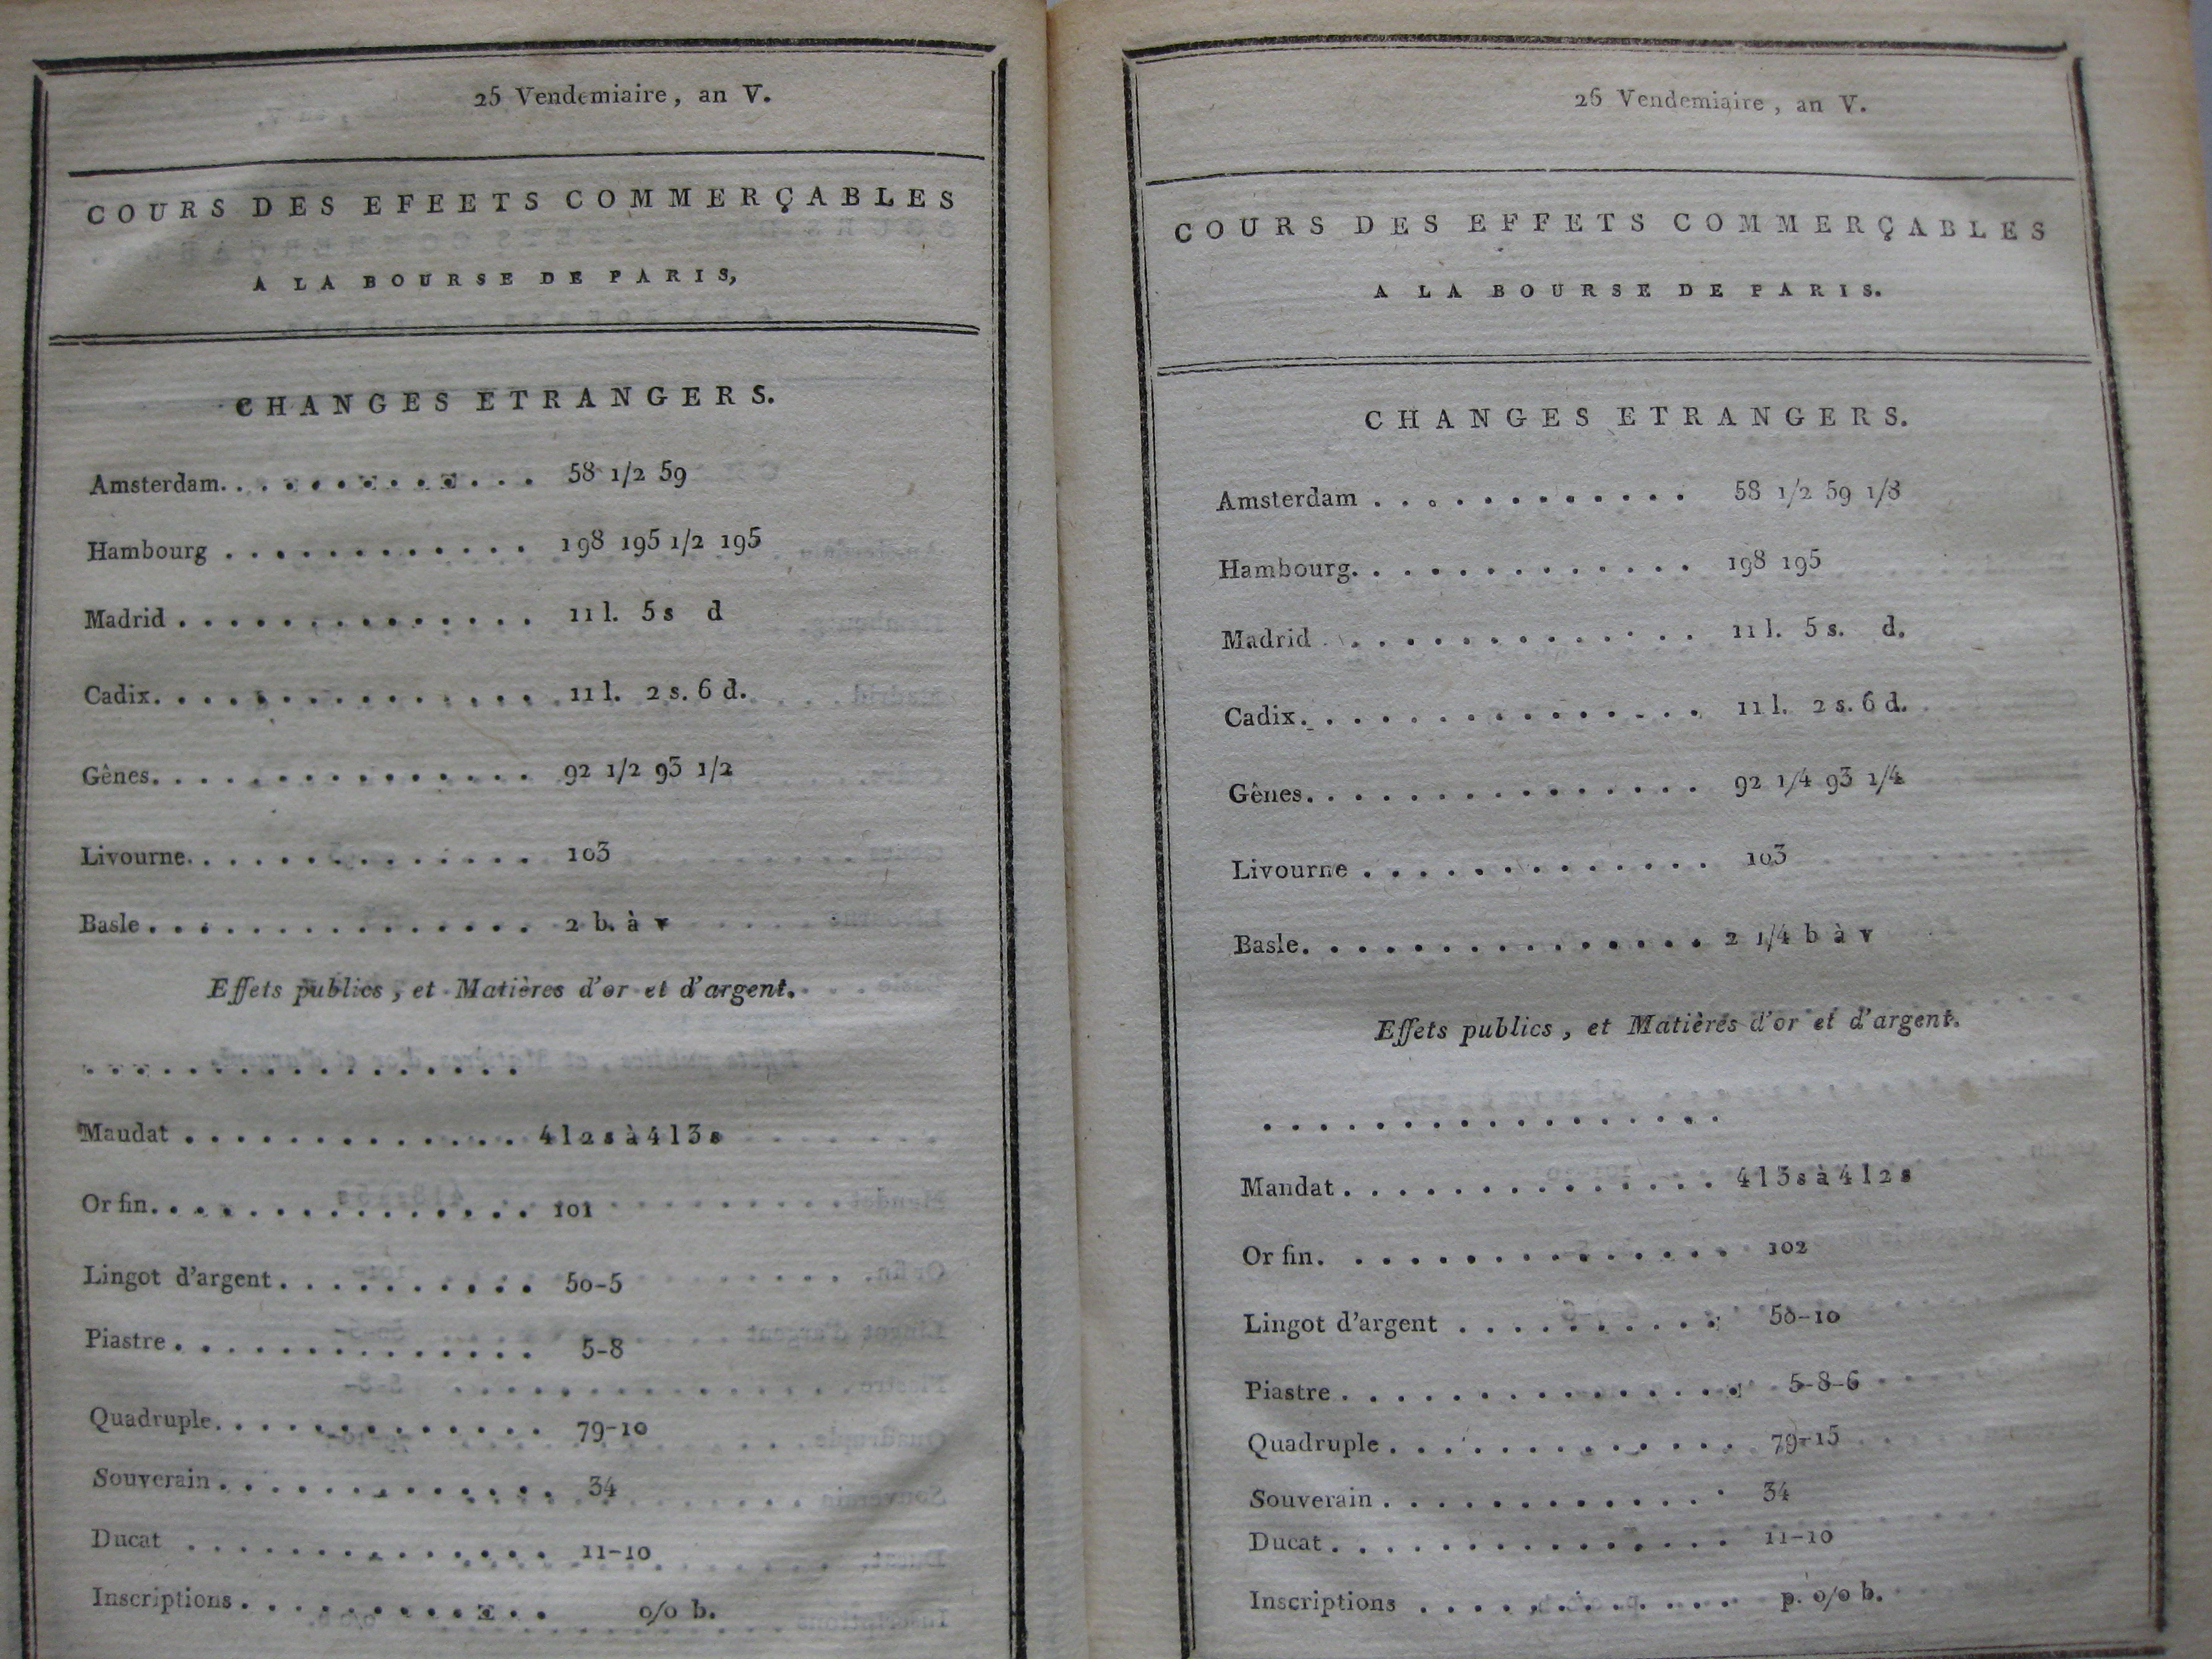 25 Vendemiaire, an V.
COURS DES EFEETS COMMERÇABLES
A LA BOURSE DE PARIS,
CHANGES ETRANGERS.
Amsterdam. . . . . . . . . . . . . 58 1/2 59
Hambourg . . . . . . . . . . . . 198 195 1/2 195
Madrid . . . . . . . . . . . . . . 11 l. 5 s d
Cadix. . . . . . . . . . . . . . . . 11 l. 2 s. 6 d.
Gênes. . . . . . . . . . . . . . . 92 1/2 93 1/2
Livourne. . . . . . . . . . . . . . 103
Basle . . . . . . . . . . . . . . . 2 b. à v
Effets publics, et Matières d'or et d'argent.
. . . . . . . . . . . . . . . . .
Maudat . . . . . . . . . . . . . 4 l 2 s à 4 l 3 s
Or fin. . . . . . . . . . . . . . . 101
Lingot d'argent . . . . . . . . . . 50-5
Piastre . . . . . . . . . . . . . . 5-8
Quadruple. . . . . . . . . . . . . 79-10
Souverain . . . . . . . . . . . . . 34
Ducat . . . . . . . . . . . . . . 11-10
Inscriptions . . . . . . . . . . . . o/o b.
26 Vendemiaire, an V.
COURS DES EFFETS COMMERÇABLES
A LA BOURSE DE PARIS.
CHANGES ETRANGERS.
Amsterdam . . . . . . . . . . . . 58 1/2 59 1/8
Hambourg. . . . . . . . . . . . . 198 195
Madrid . . . . . . . . . . . . . . 11 l. 5 s. d.
Cadix. . . . . . . . . . . . . . . 11 l. 2 s. 6 d.
Gênes. . . . . . . . . . . . . . . 92 1/4 93 1/4
Livourne . . . . . . . . . . . . . 103
Basle. . . . . . . . . . . . . . . 2 1/4 b à v
Effets publics, et Matières d'or et d'argent.
. . . . . . . . . . . . . . . . .
Mandat . . . . . . . . . . . . . . 4 l 3 s à 4 l 2 s
Or fin. . . . . . . . . . . . . . . 102
Lingot d'argent . . . . . . . . . . 50-10
Piastre . . . . . . . . . . . . . . . 5-8-6
Quadruple . . . . . . . . . . . . . 79-15
Souverain . . . . . . . . . . . . . 34
Ducat . . . . . . . . . . . . . . . 11-10
Inscriptions . . . . . . . . . . . . p. o/o b.